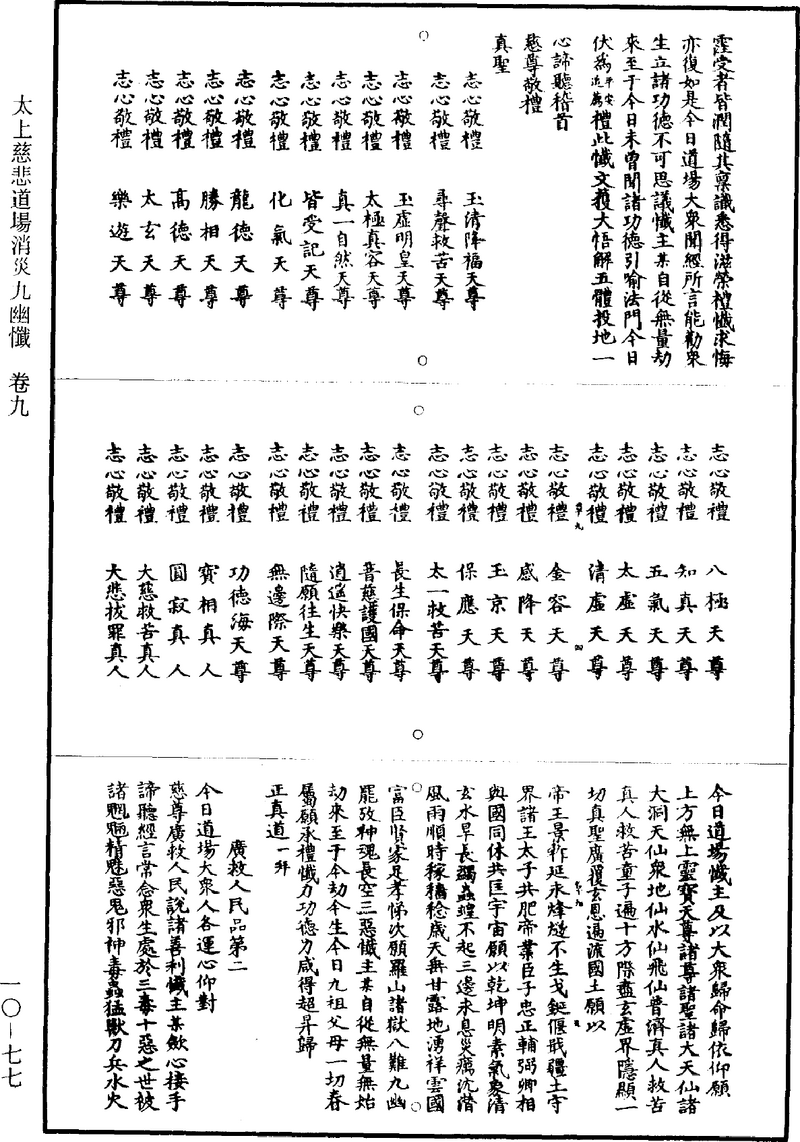 太上慈悲道場消災九幽懺 卷九
一〇－七七
霑受者皆潤隨其稟識悉得滋榮禮懺求悔
亦復如是今日道場大眾聞經所言能勸眾
生立諸功德不可思議懺主某自從無量劫
來至于今日未曾聞諸功德引喻法門今日
伏為平安近為禮此懺文獲大悟解五體投地一
心諦聽稽首
慈尊敬禮
真聖
志心敬禮 玉清降福天尊
志心敬禮 尋聲救苦天尊
志心敬禮 玉虛明皇天尊
志心敬禮 太極真容天尊
志心敬禮 真一自然天尊
志心敬禮 皆受記天尊
志心敬禮 化氣天尊
志心敬禮 龍德天尊
志心敬禮 勝相天尊
志心敬禮 高德天尊
志心敬禮 太玄天尊
志心敬禮 樂遊天尊
志心敬禮 八極天尊
志心敬禮 知真天尊
志心敬禮 五氣天尊
志心敬禮 太虛天尊
志心敬禮 清虛天尊
志心敬禮 金容天尊
志心敬禮 感降天尊
志心敬禮 玉京天尊
志心敬禮 保應天尊
志心敬禮 太一救苦天尊
志心敬禮 長生保命天尊
志心敬禮 普慈護國天尊
志心敬禮 逍遙快樂天尊
志心敬禮 隨願往生天尊
志心敬禮 無邊際天尊
志心敬禮 功德海天尊
志心敬禮 寶相真人
志心敬禮 圓寂真人
志心敬禮 大慈救苦真人
志心敬禮 大悲拔罪真人
今日道場懺主及以大眾歸命歸依仰願
上方無上靈寶天尊諸尊諸聖諸大天仙諸
大洞天仙眾地仙水仙飛仙普濟真人救苦
真人救苦童子遍十方際盡玄虛界隱顯一
切真聖廣覆玄恩遍流國土願以
帝王景祚延永烽燧不生戈鋋偃戢疆土守
界諸王太子共肥帝業臣子忠正輔弼卿相
與國同休共匡宇宙願以乾坤明素氣象清
玄水旱長蠲蟲蝗不起三邊永息災癘沈潛
風雨順時稼穡稔歲天無甘露地湧祥雲國
富臣賢家足孝悌次願羅山諸獄八難九幽
罷攷神魂長空三惡懺主某自從無量無始
劫來至于今劫今生今日九祖父母一切眷
屬願承禮懺力功德力咸得超昇歸
正真道一拜
廣救人民品第二
今日道場大眾人各運心仰對
慈尊廣救人民說諸善利懺主某斂心接手
諦聽經言常念眾生處於三毒十惡之世被
諸魍魎精魅惡鬼邪神毒蟲猛獸刀兵水火